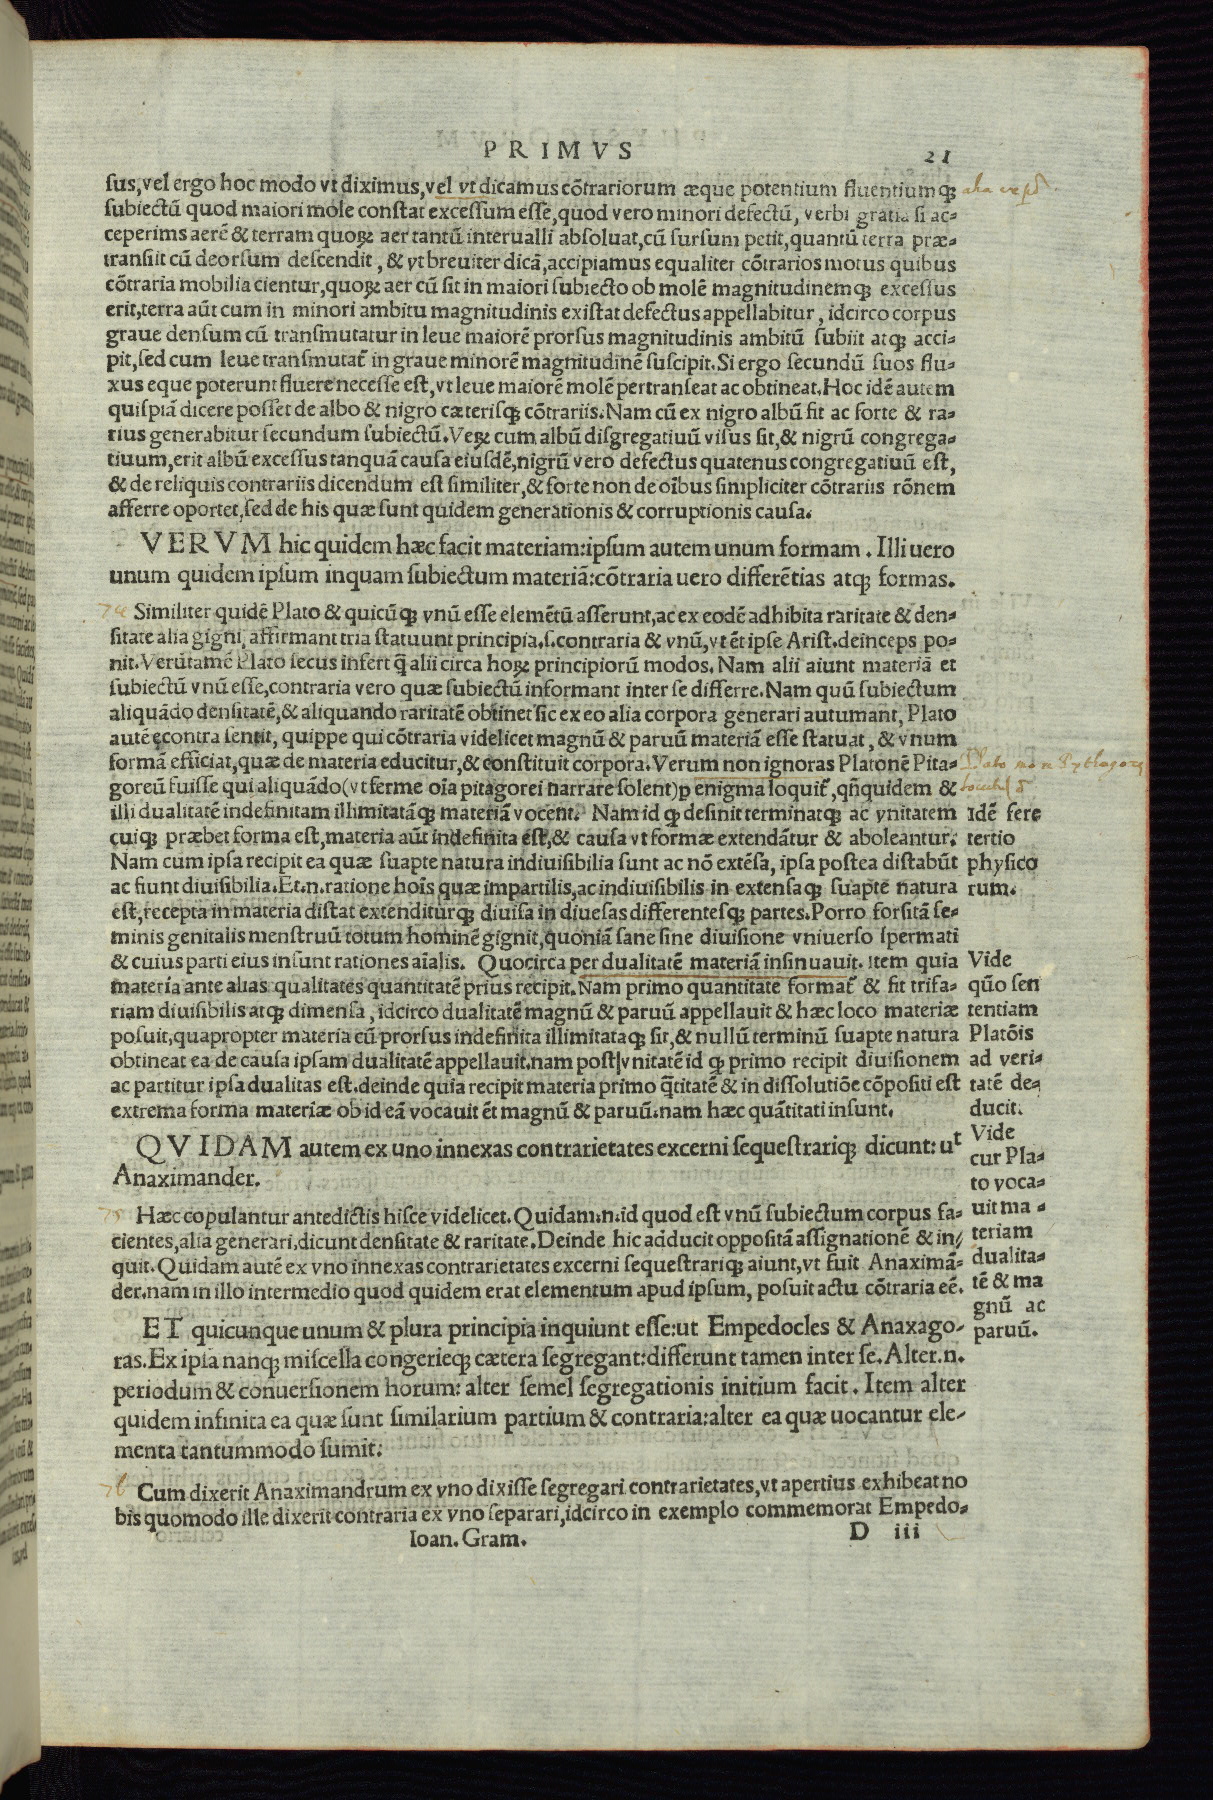 PRIMVS 21
sus, vel ergo hoc modo vt diximus, vel vt dicamus cōtrariorum æque potentium fluentiumq̃
subiectū quod maiori mole constat excessum esse, quod vero minori defectū, verbi gratia si ac-
ceperims aerē & terram quoꝝ aer tantū interualli absoluat, cū sursum petit, quantū terra præ-
transiit cū deorsum descendit, & vt breuiter dicā, accipiamus equaliter cōtrarios motus quibus
cōtraria mobilia cientur, quoꝝ aer cū sit in maiori subiecto ob molē magnitudinemq̃ excessus
erit, terra aūt cum in minori ambitu magnitudinis existat defectus appellabitur, idcirco corpus
graue densum cū transmutatur in leue maiorē prorsus magnitudinis ambitū subiit atq̃ acci-
pit, sed cum leue transmutat̃ in graue minorē magnitudinē suscipit. Si ergo secundū suos flu-
xus eque poterunt fluere necesse est, vt leue maiorē molē pertranseat ac obtineat. Hoc idē autem
quispiā dicere posset de albo & nigro cæterisq̃ cōtrariis. Nam cū ex nigro albū fit ac forte & ra-
rius generabitur secundum subiectū. Veꝝ cum albū disgregatiuū visus sit, & nigrū congrega-
tiuum, erit albū excessus tanquā causa eiusdē, nigrū vero defectus quatenus congregatiuū est,
& de reliquis contrariis dicendum est similiter, & forte non de oībus simpliciter cōtrariis rōnem
afferre oportet, sed de his quæ sunt quidem generationis & corruptionis causa.
VERVM hic quidem hæc facit materiam: ipsum autem unum formam. Illi uero
unum quidem ipsum inquam subiectum materiā: cōtraria uero differētias atq̃ formas.
74 Similiter quidē Plato & quicūq̃ vnū esse elemētū asserunt, ac ex eodē adhibita raritate & den-
sitate alia gigni, affirmant tria statuunt principia. s. contraria & vnū, vt ēt ipse Arist. deinceps po-
nit. Verūtamē Plato secus infert q̃ alii circa hoꝝ principiorū modos. Nam alii aiunt materiā et
subiectū vnū esse, contraria vero quæ subiectū informant inter se differre. Nam quū subiectum
aliquādo densitatē, & aliquando raritatē obtinet sic ex eo alia corpora generari autumant, Plato
autē econtra sentit, quippe qui cōtraria videlicet magnū & paruū materiā esse statuat, & vnum
formā efficiat, quæ de materia educitur, & constituit corpora. Verum non ignoras Platonē Pita-
goreū fuisse qui aliquādo (vt ferme oīa pitagorei narrare solent) ꝑ enigma loquit̃, qñquidem &
illi dualitatē indefinitam illimitatāq̃ materiā vocent. Nam id q̃ definit terminatq̃ ac vnitatem
cuiq̃ præbet forma est, materia aūt indefinita est, & causa vt formæ extendātur & aboleantur.
Nam cum ipsa recipit ea quæ suapte natura indiuisibilia sunt ac nō extēsa, ipsa postea distabūt
ac fiunt diuisibilia. Et. n. ratione hoīs quæ impartilis, ac indiuisibilis in extensaq̃ suapte natura
est, recepta in materia distat extenditurq̃ diuisa in diuesas differentesq̃ partes. Porro forsitā se-
minis genitalis menstruū totum hominē gignit, quoniā sane sine diuisione vniuerso spermati
& cuius parti eius insunt rationes aīalis. Quocirca per dualitatē materiā insinuauit. Item quia
materia ante alias qualitates quantitatē prius recipit. Nam primo quantitate format̃ & fit trifa-
riam diuisibilis atq̃ dimensa, idcirco dualitatē magnū & paruū appellauit & hæc loco materiæ
posuit, quapropter materia cū prorsus indefinita illimitataq̃ sit, & nullū terminū suapte natura
obtineat ea de causa ipsam dualitatē appellauit. nam post vnitatē id q̃ primo recipit diuisionem
ac partitur ipsa dualitas est. deinde quia recipit materia primo q̃titatē & in dissolutiōe cōpositi est
extrema forma materiæ ob id eā vocauit ēt magnū & paruū. nam hæc quātitati insunt.
QVIDAM autem ex uno innexas contrarietates excerni sequestrariq̃ dicunt: ut
Anaximander.
75 Hæc copulantur antedictis hisce videlicet. Quidam. n. id quod est vnū subiectum corpus fa-
cientes, alia generari, dicunt densitate & raritate. Deinde hic adducit oppositā assignationē & in-
quit. Quidam autē ex vno innexas contrarietates excerni sequestrariq̃ aiunt, vt fuit Anaximā-
der. nam in illo intermedio quod quidem erat elementum apud ipsum, posuit actu cōtraria eē.
ET quicunque unum & plura principia inquiunt esse: ut Empedocles & Anaxago-
ras. Ex ipia nanq̃ miscella congerieq̃ cætera segregant: differunt tamen inter se. Alter. n.
periodum & conuersionem horum: alter semel segregationis initium facit. Item alter
quidem infinita ea quæ sunt similarium partium & contraria: alter ea quæ uocantur ele-
menta tantummodo sumit.
76 Cum dixerit Anaximandrum ex vno dixisse segregari contrarietates, vt apertius exhibeat no
bis quomodo ille dixerit contraria ex vno separari, idcirco in exemplo commemorat Empedo-
Ioan. Gram. D iii
Plato more Pythagoreo
Idē fere
tertio
physico
rum.
Vide
qūo sen
tentiam
Platōis
ad veri-
tatē de-
ducit.
Vide
cur Pla-
to voca-
uit ma-
teriam
dualita-
tē & ma
gnū ac
paruū.